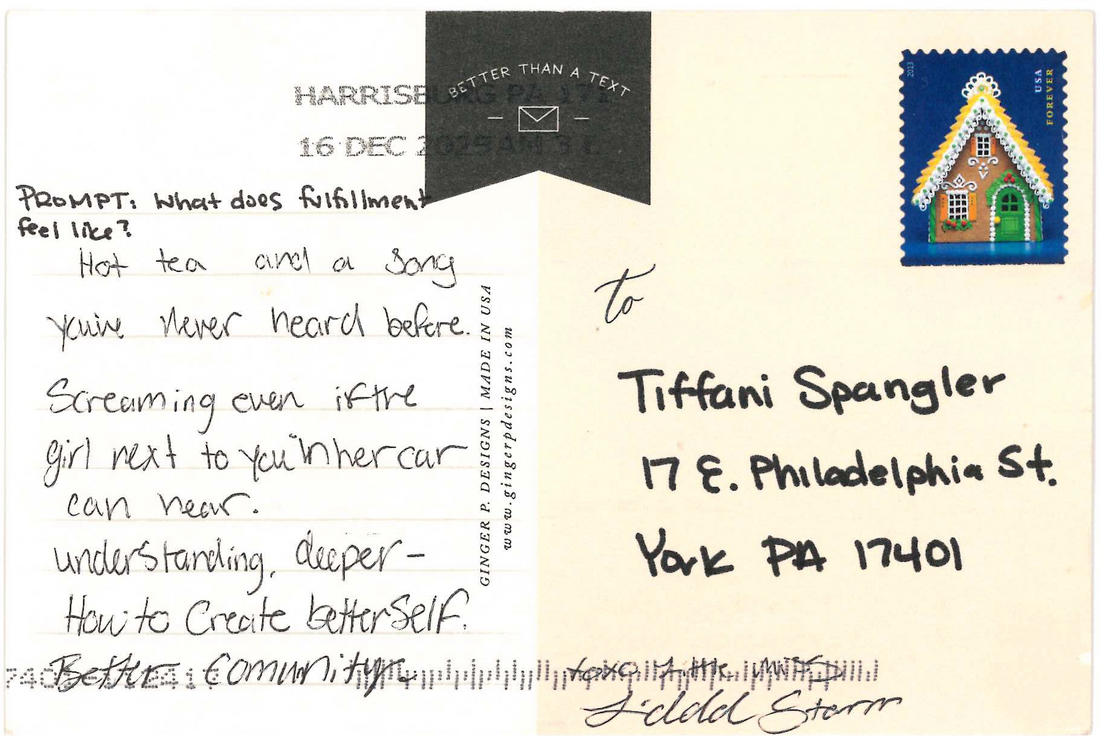 HARRISBURG PA 171
16 DEC 2025 AM 3 L
BETTER THAN A TEXT
PROMPT: What does fulfillment
feel like?
Hot tea and a song
you've never heard before.
Screaming even if the
girl next to you in her car
can hear.
understanding, deeper-
How to Create better Self.
Better Comunity.
GINGER P. DESIGNS | MADE IN USA
www.gingerpdesigns.com
2013
USA
FOREVER
to
Tiffani Spangler
17 E. Philadelphia St.
York PA 17401
xoxo Little
Storm